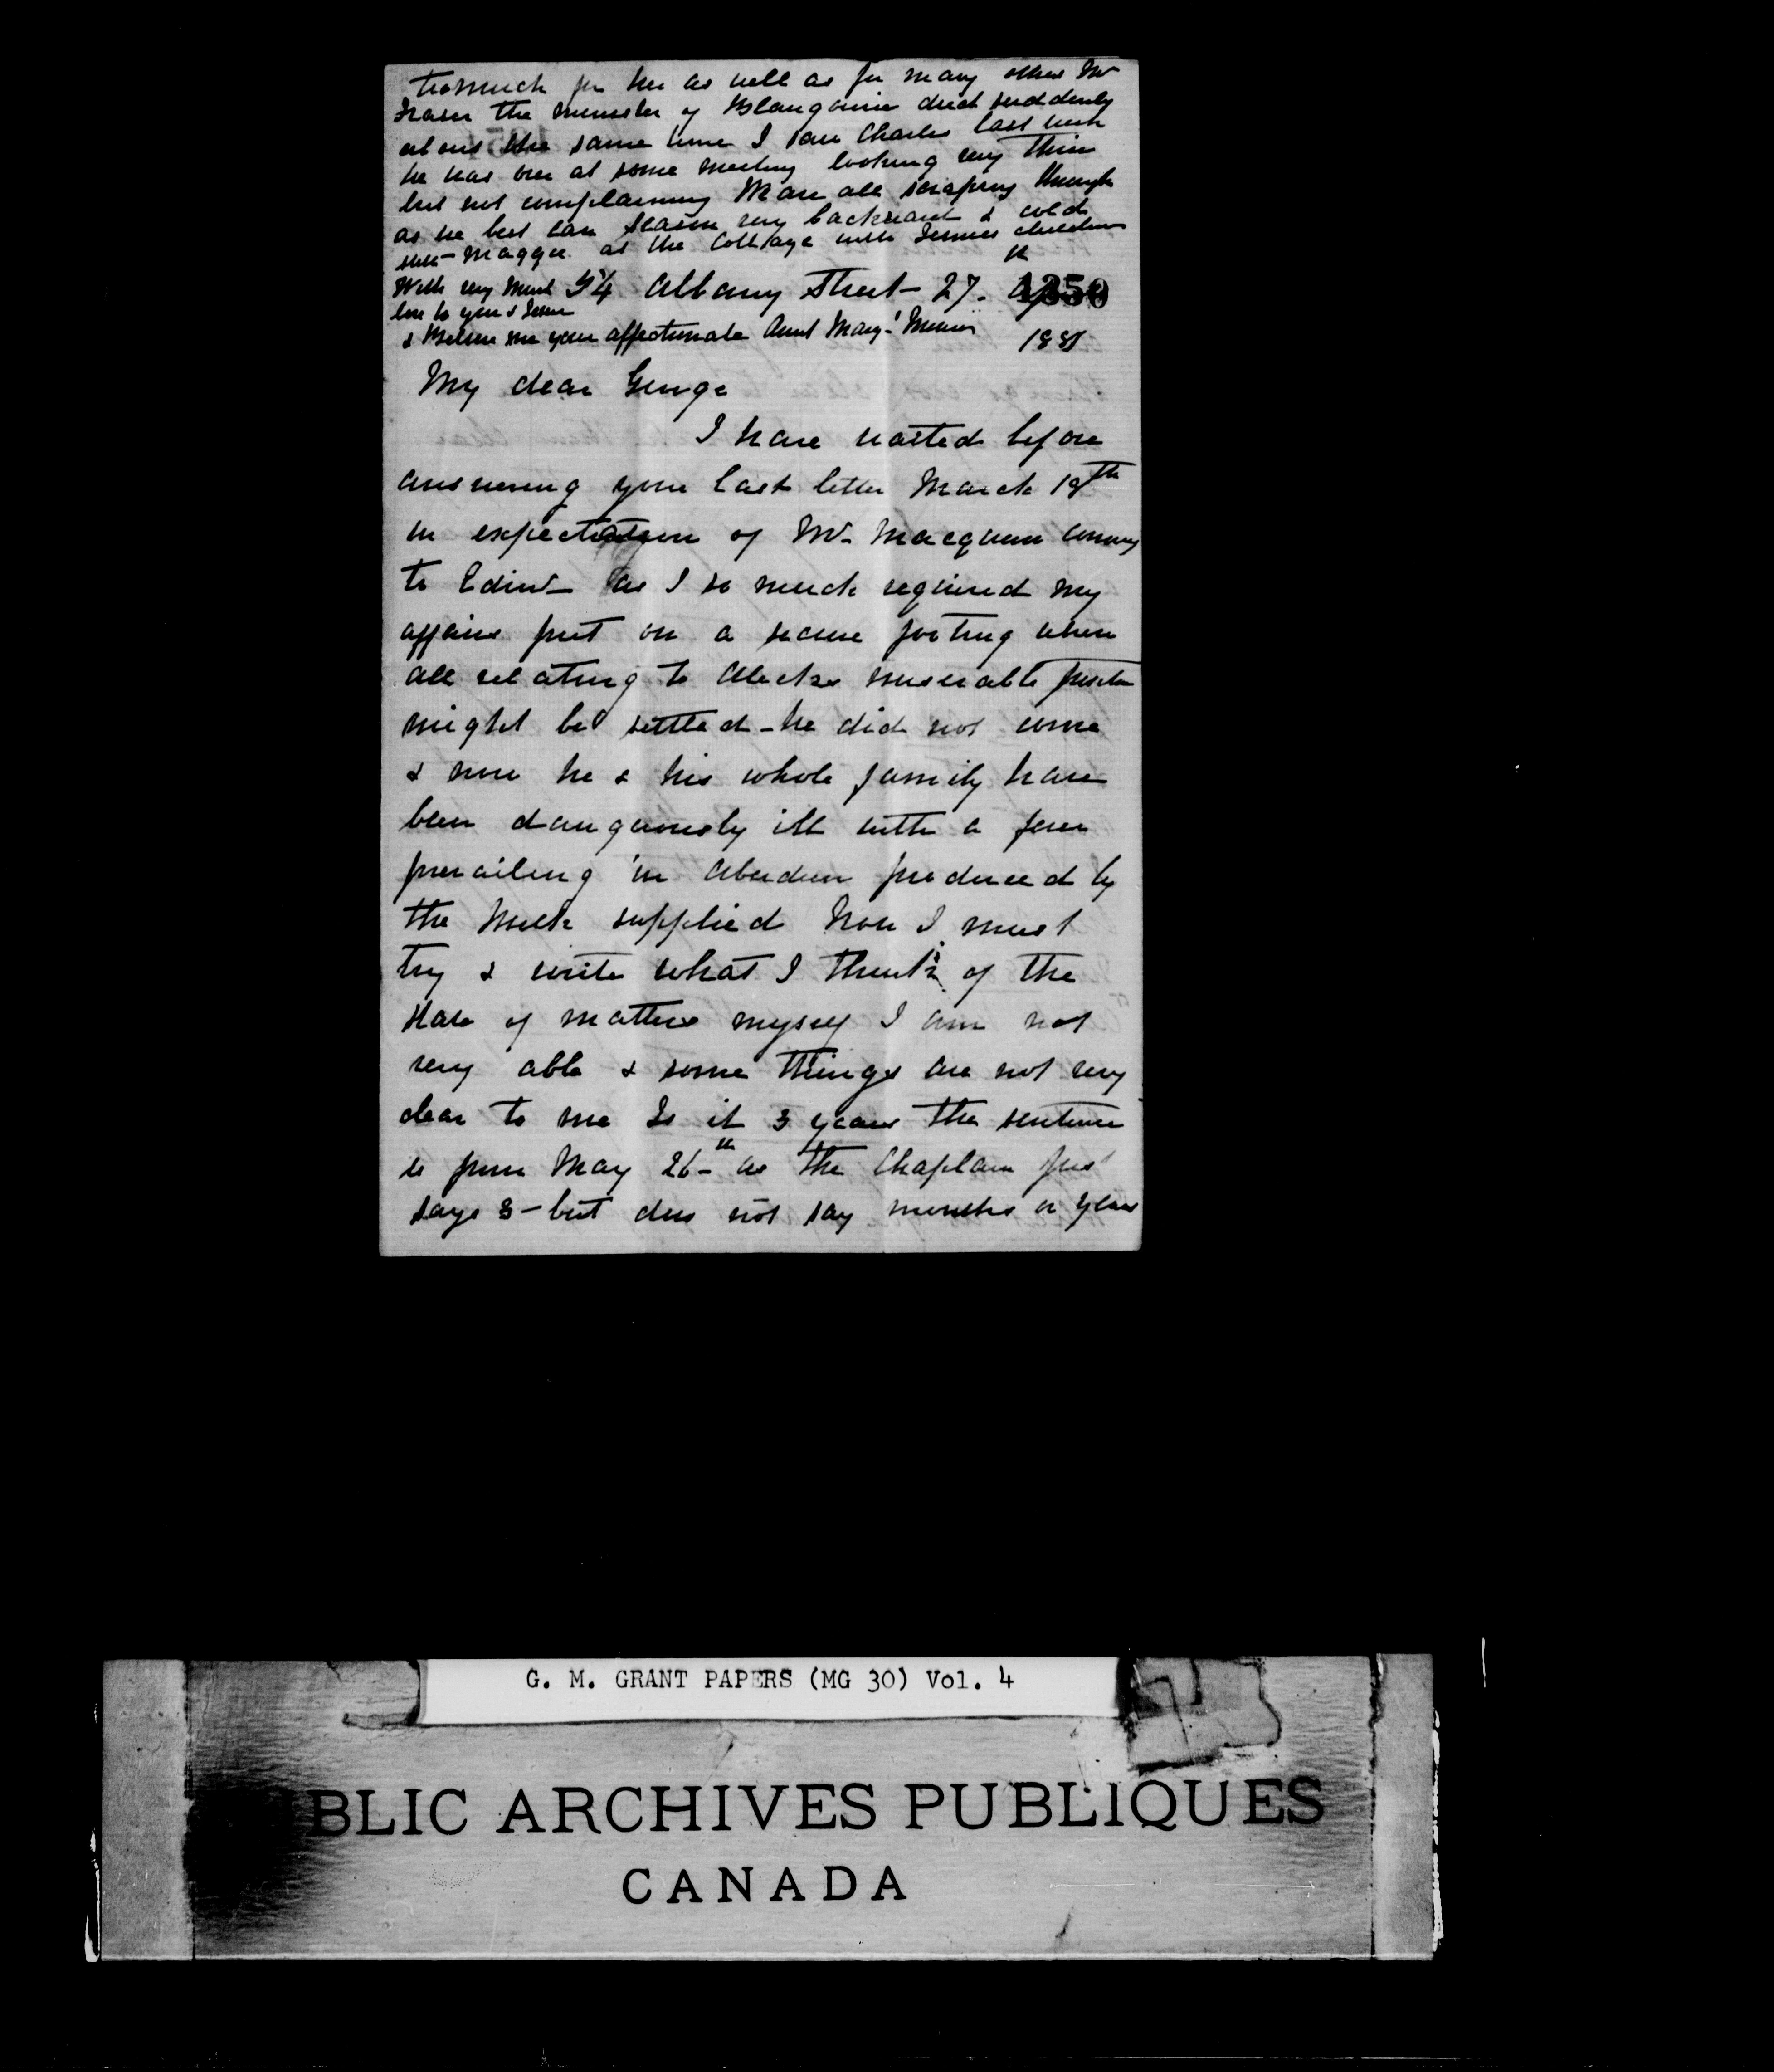 too much for her as well as for many others Mr
Fraser the minister of Blangowrie died suddenly
about the same time I saw Charles last week
he was over at some meeting looking very thin
but not complaining Mare all scraping through
as we best can Season very backward & cold
Maggie at the Cottage with Jessies children
With very much 54 Albany Street 27. 1350
love to you & Jessie
& Believe me your affectionate Aunt Mary Munro 1881
My dear George
I have waited before
answering your last letter March 19th
in expectation of Mr Macqueen coming
to Edinr as I so much required my
affairs put on a secure footing when
all relating to Alecks miserable
might be settled - he did not come
& now he & his whole family have
been dangerously ill with a fever
prevailing in Aberdeen produced by
the Milk supplied Now I must
try & write what I think of the
state of matters myself I am not
very able & some things are not very
clear to me Is it 3 years the sentence
is from May 26th as the Chaplain just
says 3 - but does not say months or years
G. M. GRANT PAPERS (MG 30) Vol. 4
BLIC ARCHIVES PUBLIQUES
CANADA